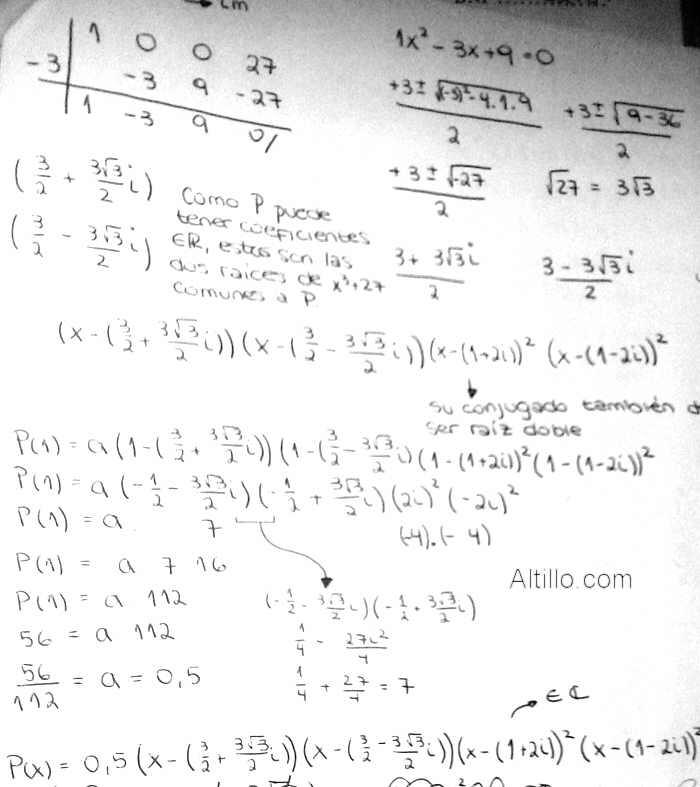 Im
1 0 0 27
-3 -3 9 -27
1 -3 9 0/
1x² - 3x + 9 = 0
+3 ± √(-3)² - 4.1.9 / 2
+3 ± √9 - 36 / 2
+3 ± √-27 / 2
√27 = 3√3
3 + 3√3 i / 2
3 - 3√3 i / 2
(3/2 + 3√3/2 i)
(3/2 - 3√3/2 i)
Como P puede
tener coeficientes
∈R, estas son las
dos raices de x³+27
comunes a P
(x-(3/2 + 3√3/2 i))(x-(3/2 - 3√3/2 i))(x-(1+2i))² (x-(1-2i))²
su conjugado también
ser raíz doble
P(1) = a(1-(3/2 + 3√3/2 i))(1-(3/2 - 3√3/2 i)(1-(1+2i))²(1-(1-2i))²
P(1) = a(-1/2 - 3√3/2 i)(-1/2 + 3√3/2 i)(2i)²(-2i)²
P(1) = a 7 (-4).(-4)
P(1) = a 7 16
P(1) = a 112
56 = a 112
56/112 = a = 0,5
Altillo.com
(-1/2 - 3√3/2 i)(-1/2 + 3√3/2 i)
1/4 - 27i²/4
1/4 + 27/4 = 7
∈ C
P(x) = 0,5(x-(3/2 + 3√3/2 i))(x-(3/2 - 3√3/2 i))(x-(1+2i))²(x-(1-2i))²